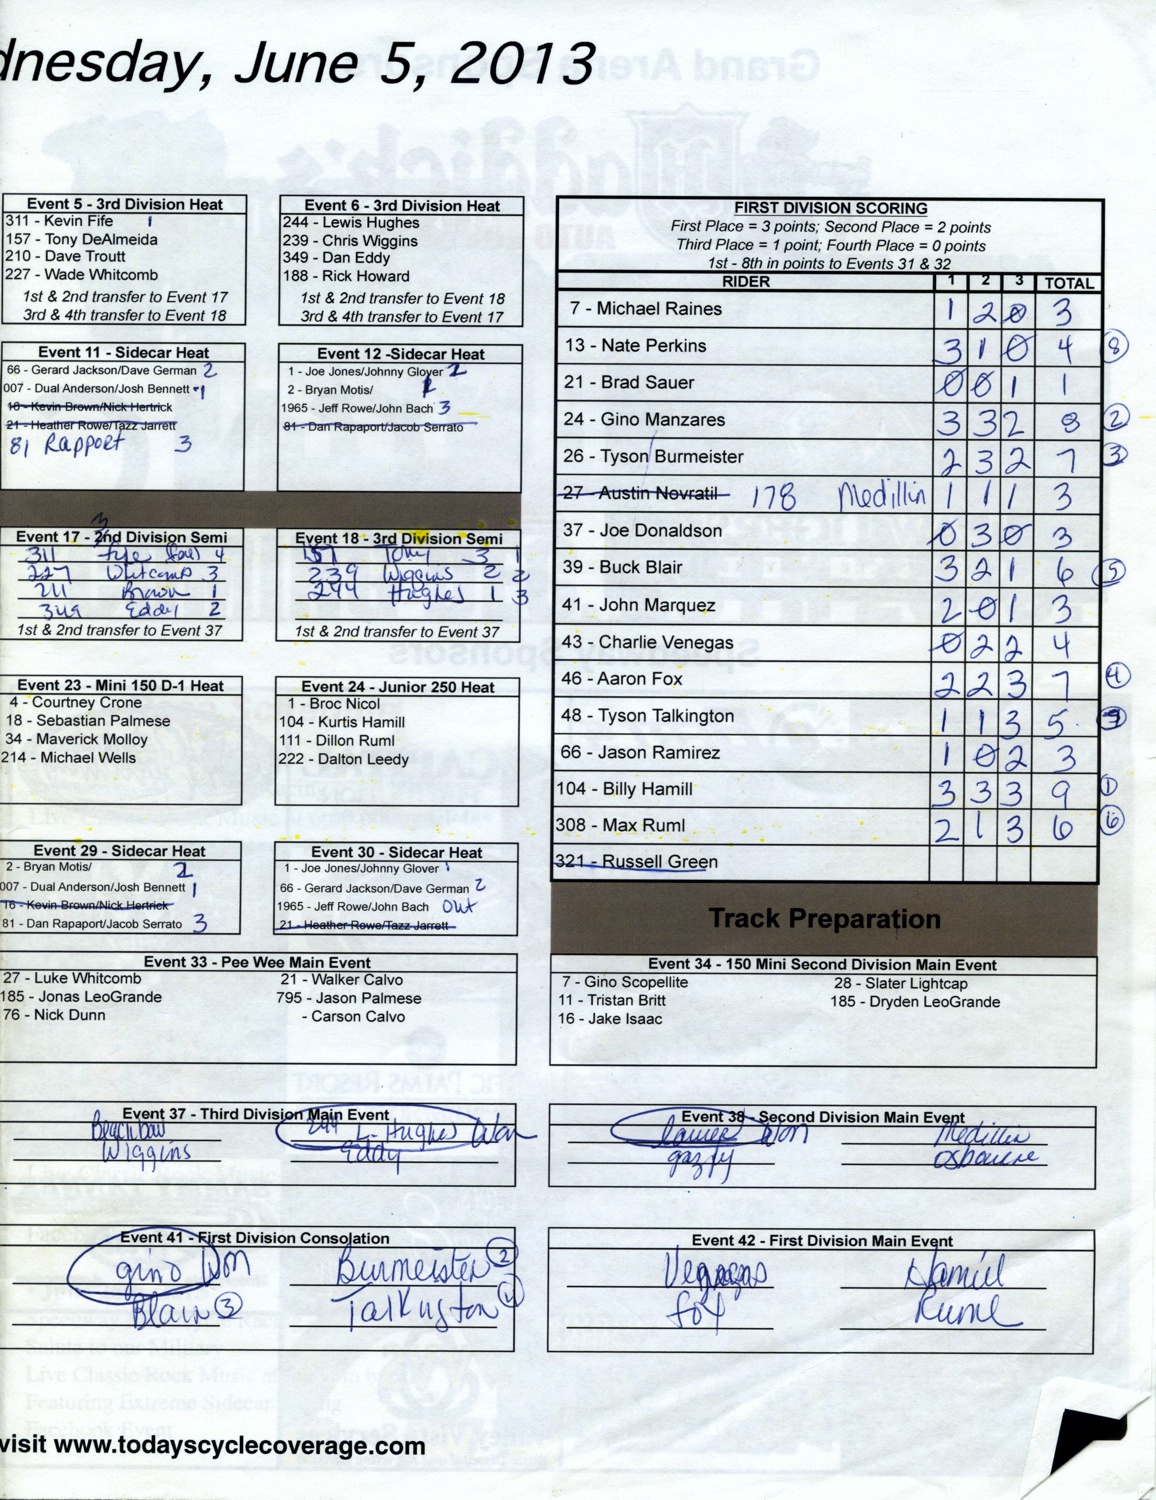 dnesday, June 5, 2013
Event 5 - 3rd Division Heat
311 - Kevin Fife 1
157 - Tony DeAlmeida
210 - Dave Troutt
227 - Wade Whitcomb
1st & 2nd transfer to Event 17
3rd & 4th transfer to Event 18
Event 6 - 3rd Division Heat
244 - Lewis Hughes
239 - Chris Wiggins
349 - Dan Eddy
188 - Rick Howard
1st & 2nd transfer to Event 18
3rd & 4th transfer to Event 17
Event 11 - Sidecar Heat
66 - Gerard Jackson/Dave German 2
007 - Dual Anderson/Josh Bennett 1
16 - Kevin Brown/Nick Hertrick
21 - Heather Rowe/Tazz Jarrett
81 Rapport 3
Event 12 -Sidecar Heat
1 - Joe Jones/Johnny Glover 2
2 - Bryan Motis/ 1
1965 - Jeff Rowe/John Bach 3
81 - Dan Rapaport/Jacob Serrato
Event 17 - 2nd Division Semi
3
311 Fife fail 4
227 Whitcomb 3
211 Brown 1
349 Eddy 2
1st & 2nd transfer to Event 37
Event 18 - 3rd Division Semi
157 Tony 3 1
239 Wiggins 2 2
244 Hughes 1 3
1st & 2nd transfer to Event 37
Event 23 - Mini 150 D-1 Heat
4 - Courtney Crone
18 - Sebastian Palmese
34 - Maverick Molloy
214 - Michael Wells
Event 24 - Junior 250 Heat
1 - Broc Nicol
104 - Kurtis Hamill
111 - Dillon Ruml
222 - Dalton Leedy
Event 29 - Sidecar Heat
2 - Bryan Motis/ 2
007 - Dual Anderson/Josh Bennett 1
16 - Kevin Brown/Nick Hertrick
81 - Dan Rapaport/Jacob Serrato 3
Event 30 - Sidecar Heat
1 - Joe Jones/Johnny Glover 1
66 - Gerard Jackson/Dave German 2
1965 - Jeff Rowe/John Bach out
21 - Heather Rowe/Tazz Jarrett
FIRST DIVISION SCORING
First Place = 3 points; Second Place = 2 points
Third Place = 1 point; Fourth Place = 0 points
1st - 8th in points to Events 31 & 32
RIDER 1 2 3 TOTAL
7 - Michael Raines 1 2 0 3
13 - Nate Perkins 3 1 0 4 8
21 - Brad Sauer 0 0 1 1
24 - Gino Manzares 3 3 2 8 2
26 - Tyson Burmeister 2 3 2 7 3
27 - Austin Novratil 178 Medillin 1 1 1 3
37 - Joe Donaldson 0 3 0 3
39 - Buck Blair 3 2 1 6 5
41 - John Marquez 2 0 1 3
43 - Charlie Venegas 0 2 2 4
46 - Aaron Fox 2 2 3 7 4
48 - Tyson Talkington 1 1 3 5
66 - Jason Ramirez 1 0 2 3
104 - Billy Hamill 3 3 3 9 1
308 - Max Ruml 2 1 3 6 6
321 - Russell Green
Track Preparation
Event 33 - Pee Wee Main Event
27 - Luke Whitcomb 21 - Walker Calvo
185 - Jonas LeoGrande 795 - Jason Palmese
76 - Nick Dunn - Carson Calvo
Event 34 - 150 Mini Second Division Main Event
7 - Gino Scopellite 28 - Slater Lightcap
11 - Tristan Britt 185 - Dryden LeoGrande
16 - Jake Isaac
Event 37 - Third Division Main Event
244 L. Hughes Won
Wiggins Eddy
Event 38 - Second Division Main Event
Won Medillin
Osbourne
Event 41 - First Division Consolation
gino Won Burmeister 2
Blair 3 Talkington 4
Event 42 - First Division Main Event
Venegas Hamill
fox Ruml
visit www.todayscyclecoverage.com